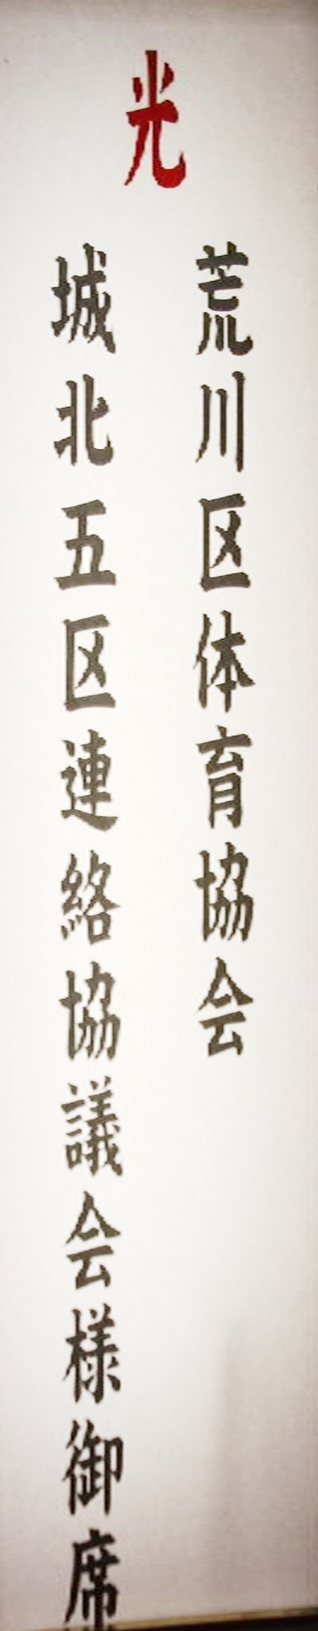 光
荒川区体育協会
城北五区連絡協議会様御席